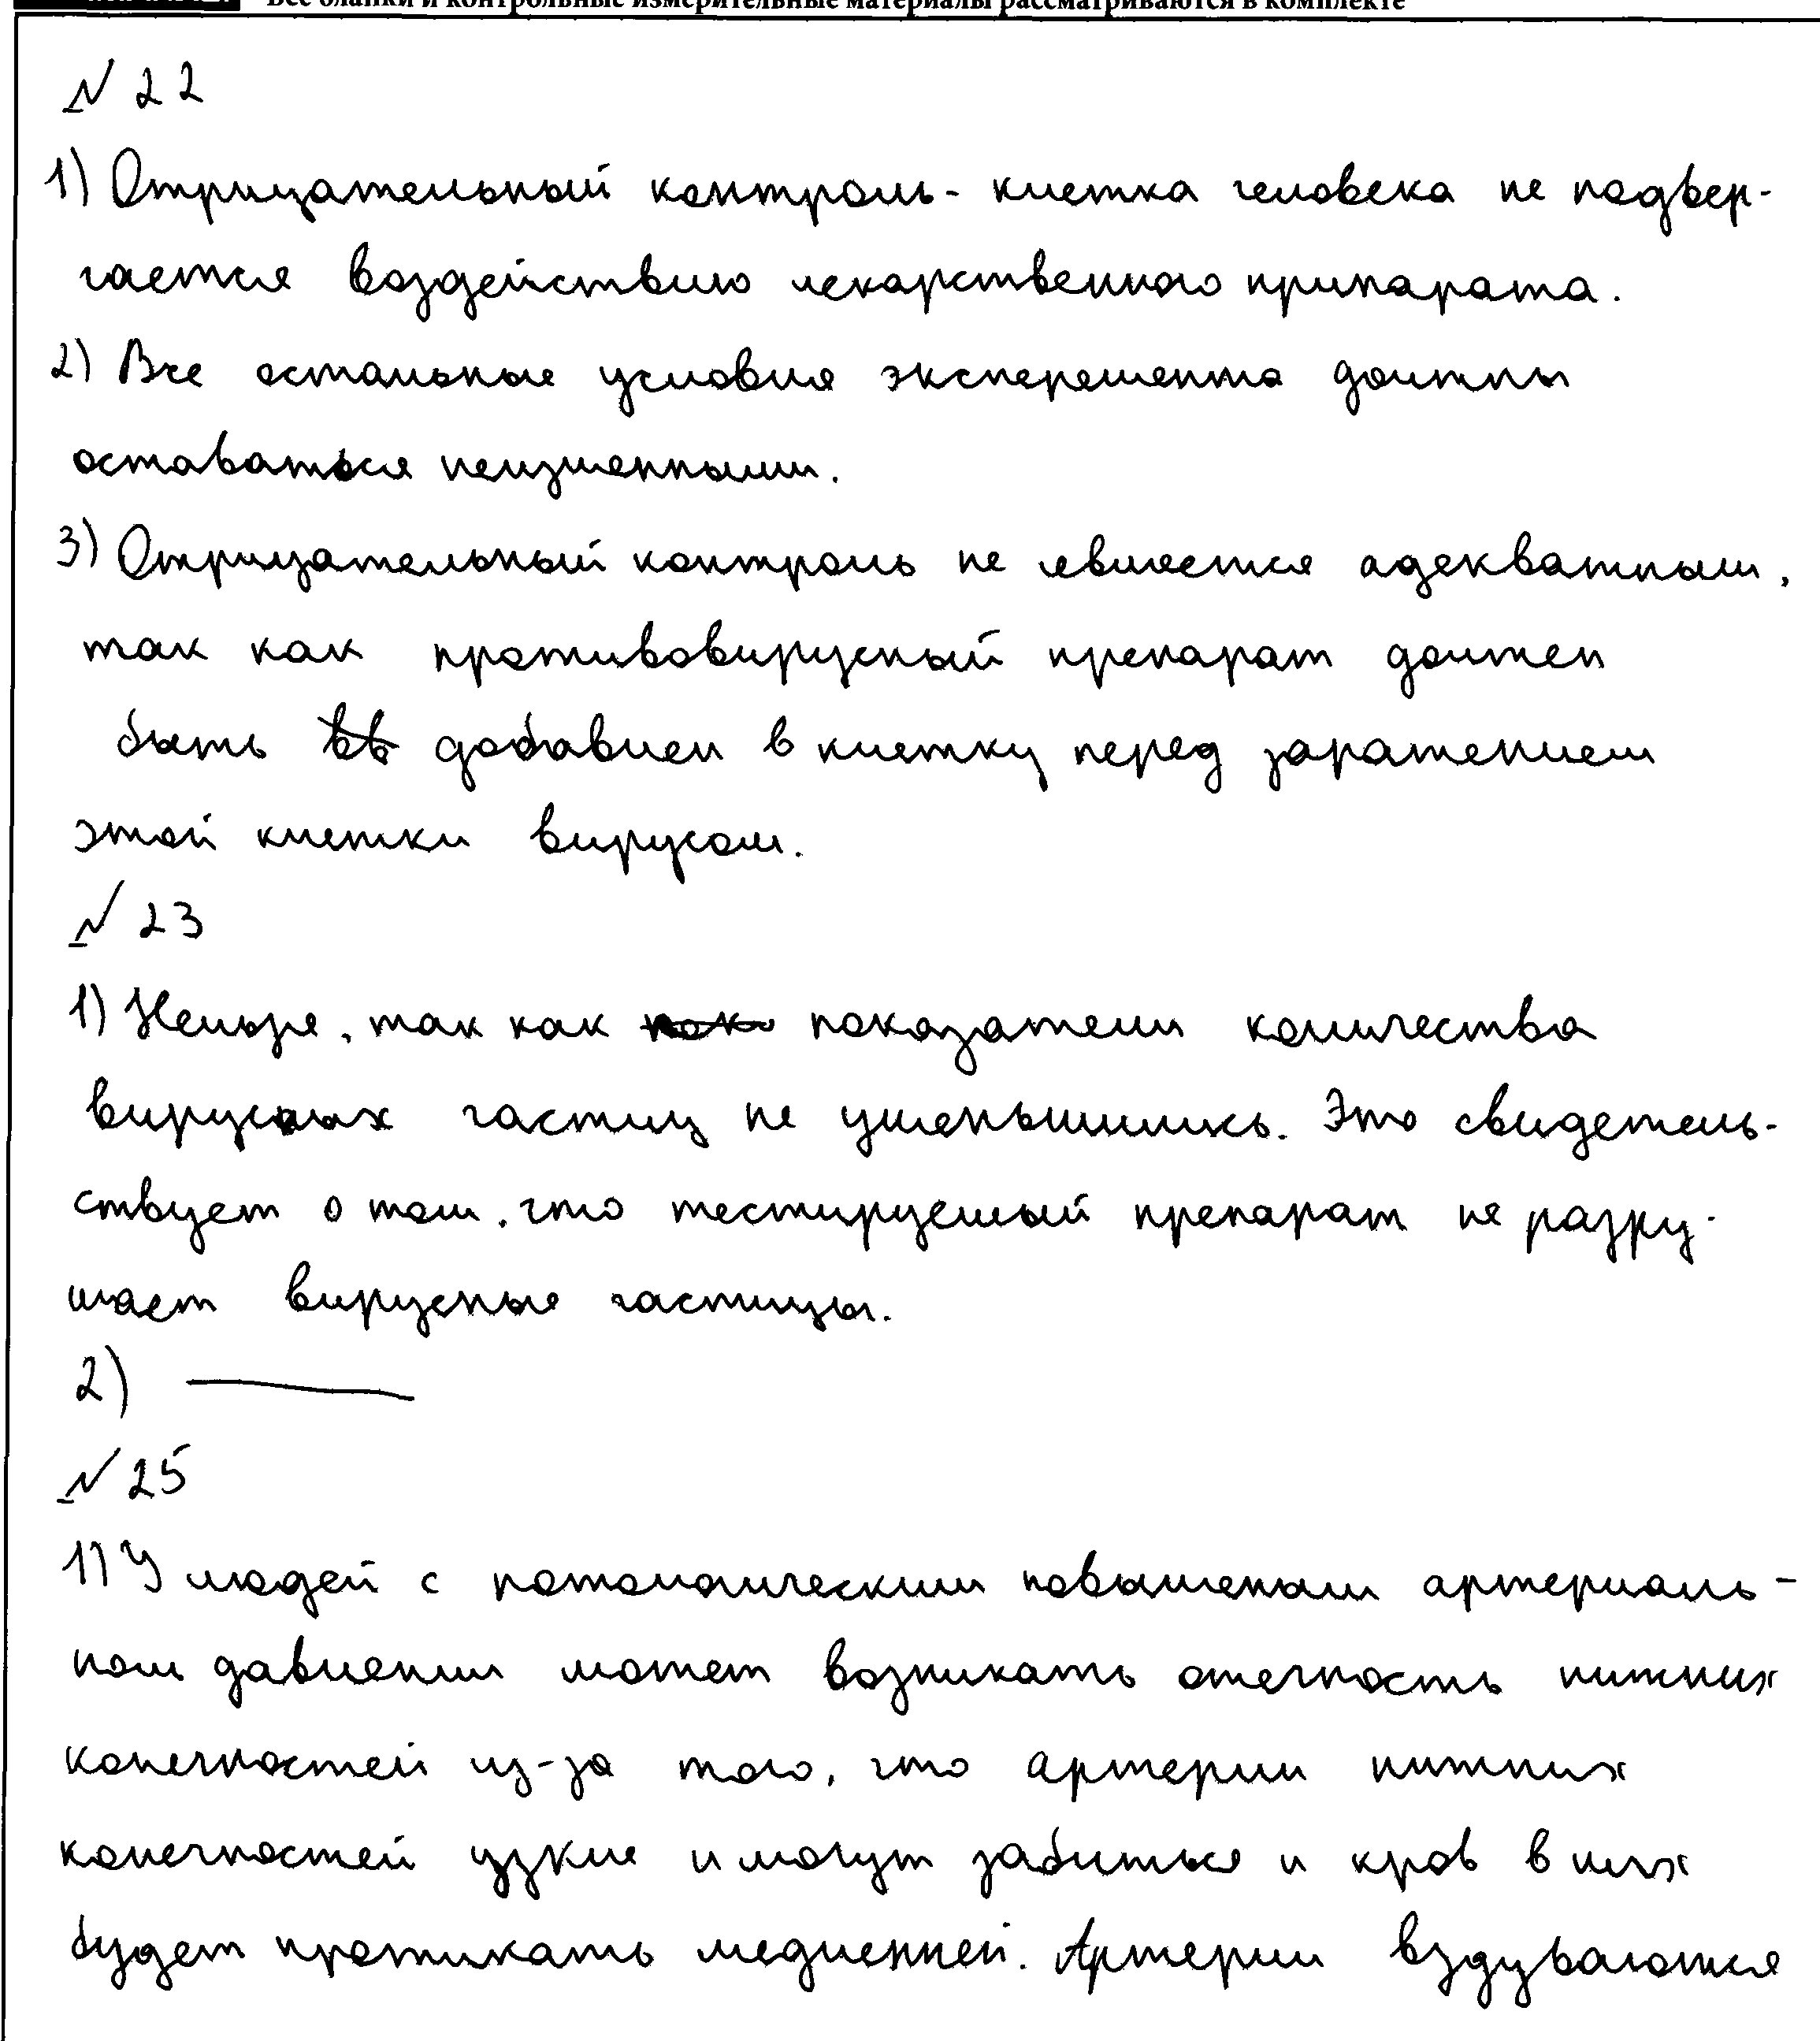 Все бланки и контрольные измерительные материалы рассматриваются в комплекте
№ 22
1) Отрицательный контроль - клетка человека не подвер-
гается воздействию лекарственного припарата.
2) Все остальные условия эксперемента должны
оставаться неизменными.
3) Отрицательный контроль не является адекватным,
так как противовирусный препарат должен
быть добавлен в клетку перед заражением
этой клетки вирусом.
№ 23
1) Нельзя, так как показатели количества
вирусных частиц не уменьшились. Это свидетель-
ствует о том, что тестируемый препарат не разру-
шает вирусные частицы.
2) —
№ 25
1) У людей с патологическим повышеным артериаль-
ном давлении может возникать отечность нижних
конечностей из-за того, что артерии нижних
конечностей узкие и могут забиться и кров в них
будет протикать медленней. Артерии вздуваются